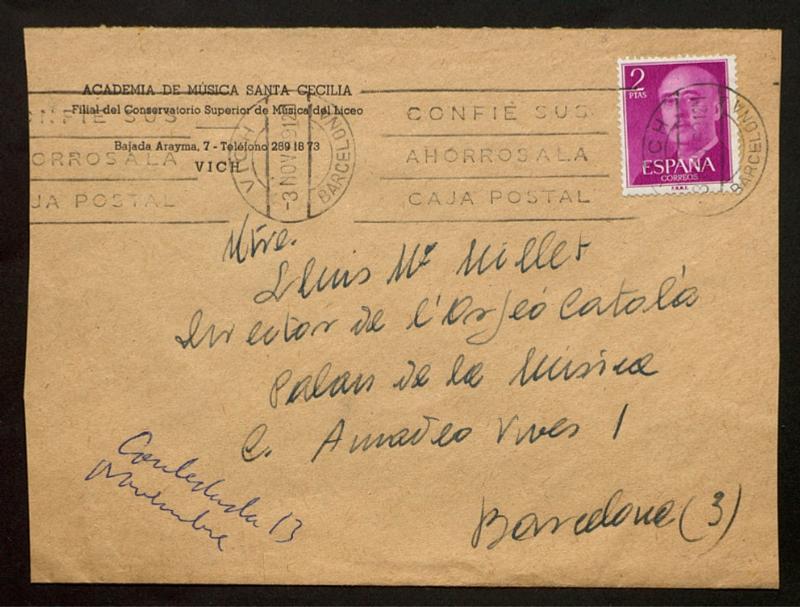 ACADEMIA DE MÚSICA SANTA CECILIA
Filial del Conservatorio Superior de Música del Liceo
Bajada Arayma, 7 - Teléfono 289 18 73
VICH
CONFIE SUS
AHORROS A LA
JA POSTAL
VICH
-3 NOV
BARCELONA
CONFIE SUS
AHORROS A LA
CAJA POSTAL
2
PTAS
ESPAÑA
CORREOS
BARCELONA
Mtre.
Lluis Mª Millet
Director de l'Orfeó Català
Palau de la Música
C. Amadeo Vives 1
Barcelona (3)
Contestada 13
novembre